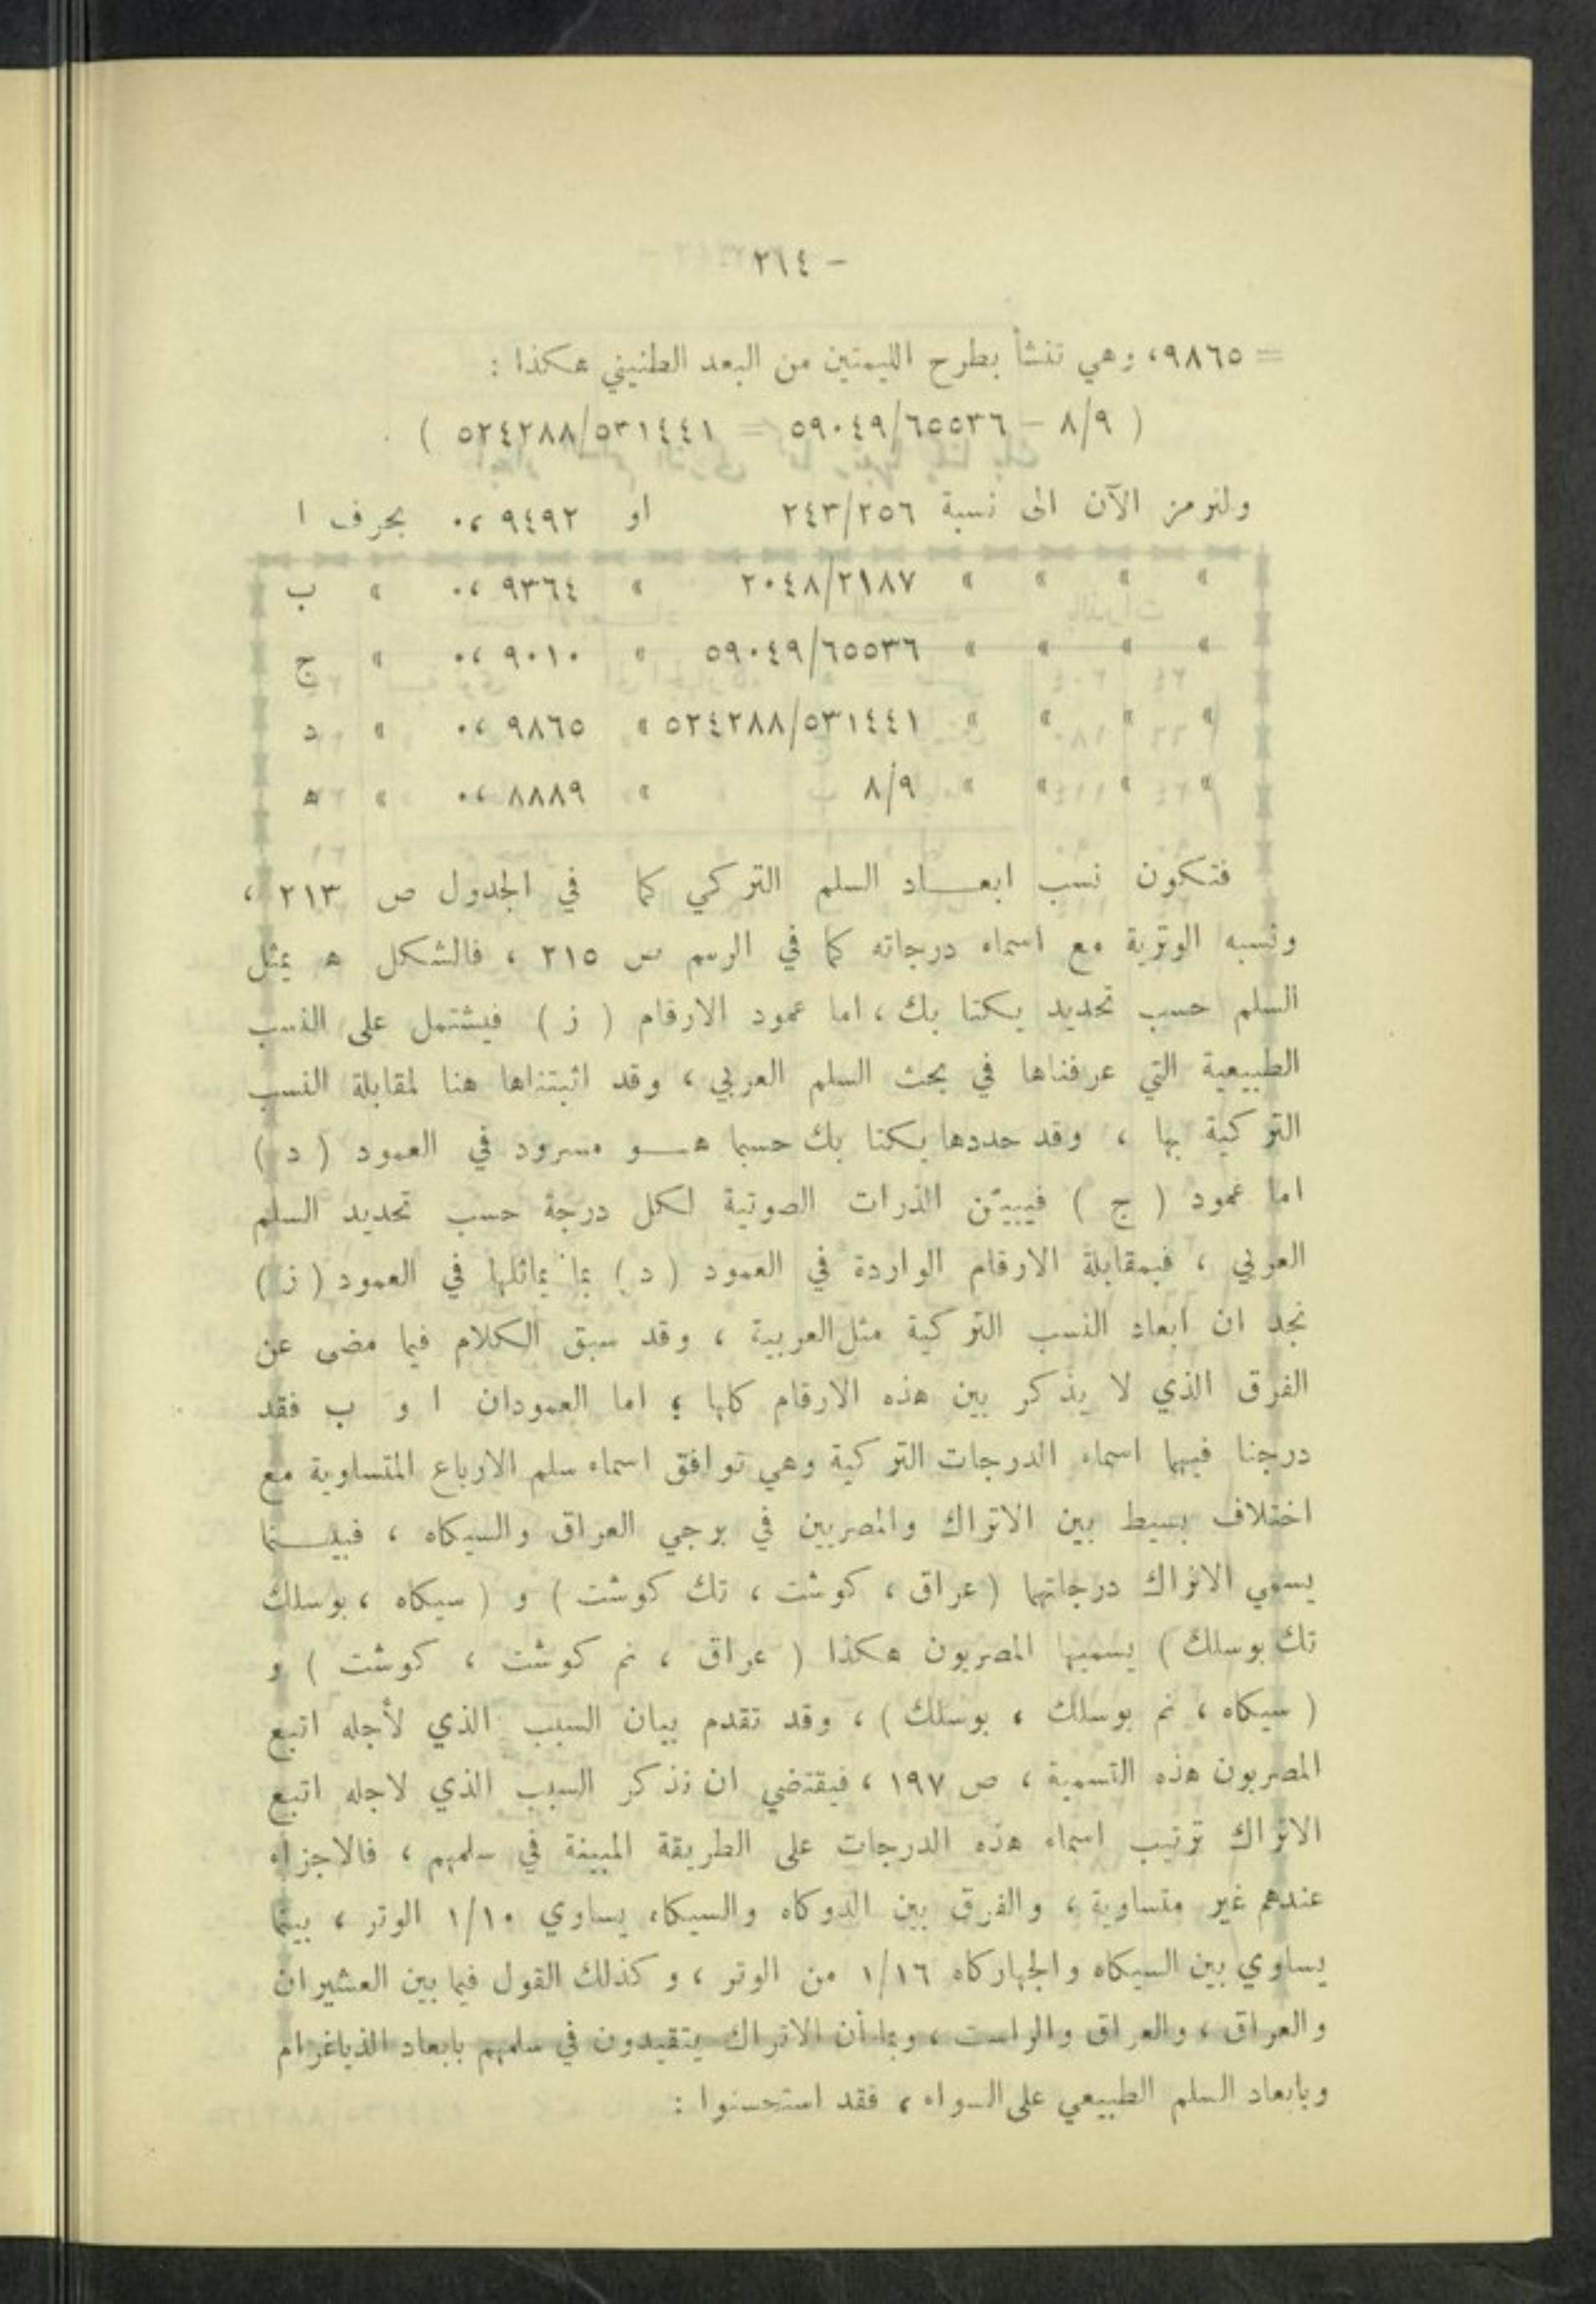 - ٢٦٤ -
= ٩٨٦٥، وهي تنشأ بطرح الليمتين من البعد الطنيني هكذا :
( ٨/٩ - ٥٩٠٤٩/٦٥٥٣٦ = ٥٢٤٢٨٨/٥٣١٤٤١ )
ولنرمز الآن الى نسبة ٢٤٣/٢٥٦ او ٩٤٩٢ ،٠ بحرف ا
» » » » ٢٠٤٨/٢١٨٧ » ٩٣٦٤ ،٠ » ب
» » » » ٥٩٠٤٩/٦٥٥٣٦ » ٩٠١٠ ،٠ » ج
» » » » ٥٢٤٢٨٨/٥٣١٤٤١ » ٩٨٦٥ ،٠ » د
» » » » ٨/٩ » ٨٨٨٩ ،٠ » ه
فتكون نسب ابعـــاد السلم التركي كما في الجدول ص ٢١٣ ،
ونسبه الوترية مع اسماء درجاته كما في الرسم ص ٢١٥ ، فالشكل ه يمثل
السلم حسب تحديد يكتا بك ، اما عمود الارقام ( ز ) فيشتمل على النسب
الطبيعية التي عرفناها في بحث السلم العربي ، وقد اثبتناها هنا لمقابلة النسب
التركية بها ، وقد حددها يكتا بك حسبما هــو مسرود في العمود ( د )
اما عمود ( ج ) فيبيّن الذرات الصوتية لكل درجة حسب تحديد السلم
العربي ، فبمقابلة الارقام الواردة في العمود ( د ) بما يماثلها في العمود ( ز )
نجد ان ابعاد النسب التركية مثل العربية ، وقد سبق الكلام فيما مضى عن
الفرق الذي لا يذكر بين هذه الارقام كلها ؛ اما العمودان ا و ب فقد
درجنا فيهما اسماء الدرجات التركية وهي توافق اسماء سلم الارباع المتساوية مع
اختلاف بسيط بين الاتراك والمصريين في برجي العراق والسيكاه ، فبيـــنما
يسمي الاتراك درجاتهما ( عراق ، كوشت ، تك كوشت ) و ( سيكاه ، بوسلك
تك بوسلك ) يسميها المصريون هكذا ( عراق ، نم كوشت ، كوشت ) و
( سيكاه ، نم بوسلك ، بوسلك ) ، وقد تقدم بيان السبب الذي لأجله اتبع
المصريون هذه التسمية ، ص ١٩٧ ، فيقتضي ان نذكر السبب الذي لاجله اتبع
الاتراك ترتيب اسماء هذه الدرجات على الطريقة المبينة في سلمهم ، فالاجزاء
عندهم غير متساوية ، والفرق بين الدوكاه والسيكاه يساوي ١/١٠ الوتر ، بينما
يساوي بين السيكاه والجهاركاه ١/١٦ من الوتر ، وكذلك القول فيما بين العشيران
والعراق ، والعراق والراست ، وبما أن الاتراك يتقيدون في سلمهم بابعاد الذياغرام
وبابعاد السلم الطبيعي على السواء ، فقد استحسنوا :